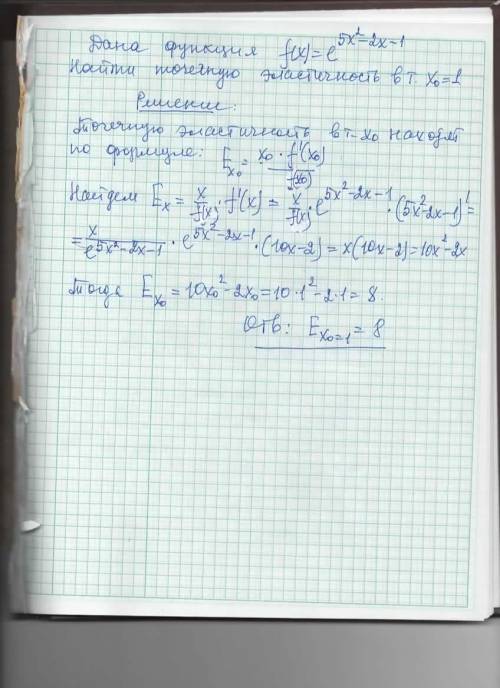 Дана функция f(x)=e^{5x²-2x-1}
Найти точечную эластичность в т. x₀=1
Решение:
Точечную эластичность в т. x₀ находят
по формуле: E_{x₀} = x₀·f'(x₀)/f(x₀)
Найдем E_x = x/f(x) · f'(x) = x/f(x) · e^{5x²-2x-1} · (5x²-2x-1)' =
= x/e^{5x²-2x-1} · e^{5x²-2x-1} · (10x-2) = x(10x-2) = 10x²-2x
Тогда E_{x₀} = 10x₀²-2x₀ = 10·1²-2·1 = 8.
Отв: E_{x₀=1} = 8